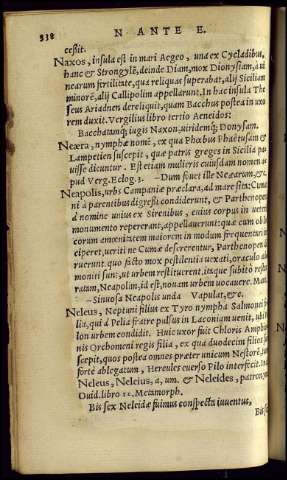 338 N ANTE E.
cessit.
Naxos, insula est in mari Aegeo, una ex Cycladibus,
hanc & Strongylē, deinde Diam, mox Dionysiam, à ui
nearum fertilitate, quæ reliquas superabat, alij Siciliam
minorē, alij Callipolim appellarunt. In hac insula The
seus Ariadnen dereliquit, quam Bacchus postea in uxo
rem duxit. Vergilius libro tertio Aeneidos:
Bacchatamq; iugis Naxon, uiridemq; Donysam.
Neæra, nymphæ nomē, ex qua Phœbus Phaëtusam &
Lampetien suscepit, quæ patris greges in Sicilia pa
uisse dicuntur. Est etiam mulieris cuiusdam nomen a=
pud Verg. Eclog. 3. --Dum fouet ille Neæram, &c.
Neapolis, urbs Campaniæ præclara, ad mare sita: Cuma
ni à parentibus digressi condiderunt, & Parthenopen
à nomine unius ex Sirenibus, cuius corpus in uetere
monumento repererant, appellauerunt: quæ cum ob lo
corum amœnitatem maiorem in modum frequentari in
ciperet, ueriti ne Cumæ desererentur, Parthenopen di
ruerunt. quo facto mox pestilentia uexati, oraculo ad
moniti sunt, ut urbem restituerent. itaque subitò restau
ratam, Neapolim, id est, nouam urbem uocauere. Mart.
--Sinuosa Neapolis unda Vapulat, &c.
Neleus, Neptuni filius ex Tyro nympha Salmonei fi
lia, qui à Pelia fratre pulsus in Laconiam uenit, ubi Py
lon urbem condidit. Huic uxor fuit Chloris Amphio
nis Orchomeni regis filia, ex qua duodecim filios su
scepit, quos postea omnes præter unicum Nestorē, tum
forte ablegatum, Hercules euerso Pilo interfecit. Inde
Neleus, Neleius, a, um. & Neleides, patronym.
Ouid. libro 12. Metamorph.
Bis sex Nelidæ fuimus conspecta iuuentus,
Bis sex